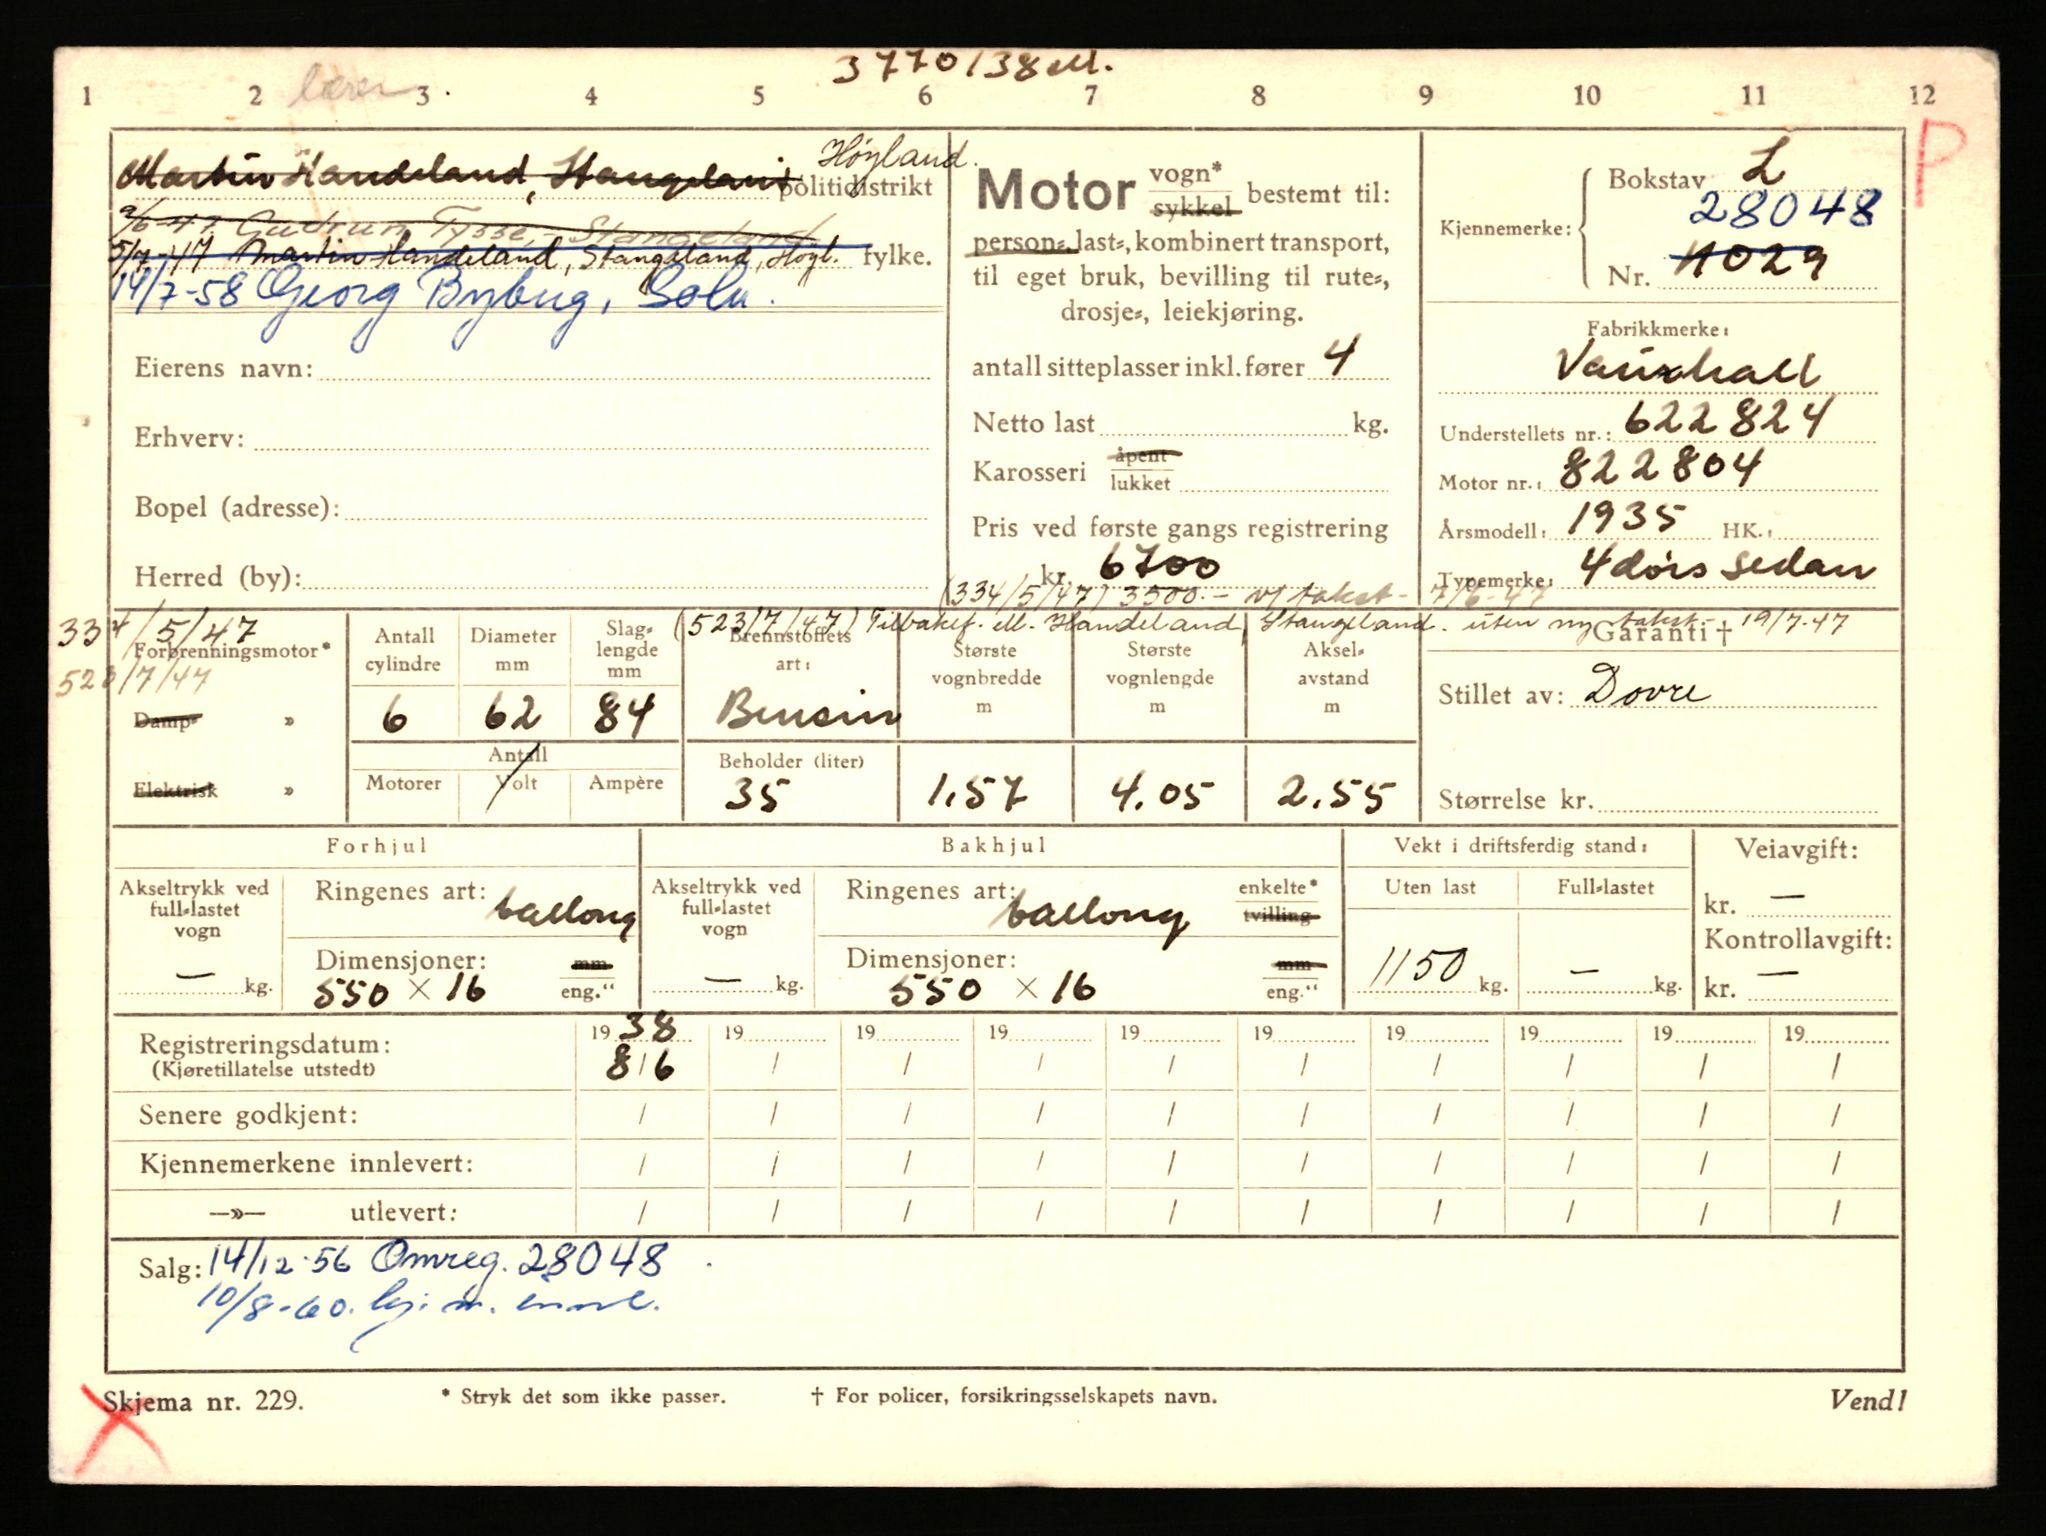 3770/38 M.
1 2 3 4 5 6 7 8 9 10 11 12
P
Høyland.
Martin Handeland, Stangeland politidistrikt
Gudrun Tysse, - Stangeland
5/7-47 Martin Handeland, Stangeland, Høyl. fylke.
14/7-58 Georg Byberg, Sola.
Eierens navn:
Erhverv:
Bopel (adresse):
Herred (by):
Motor vogn* sykkel bestemt til:
person-, last-, kombinert transport,
til eget bruk, bevilling til rute-,
drosje-, leiekjøring.
antall sitteplasser inkl. fører 4
Netto last kg.
Karosseri åpent lukket
Pris ved første gangs registrering
kr. 6700
(334/5/47) 3500.- v/ takst- 7/6-47
Kjennemerke: Bokstav L
28048
Nr. 11029
Fabrikkmerke:
Vauxhall
Understellets nr.: 622824
Motor nr.: 822804
Årsmodell: 1935 HK.:
Typemerke: 4dørs sedan
(523/7/47) Tilbakef. M. Handeland, Stangeland. uten ny takst- 19/7-47
334/5/47
Forbrenningsmotor*
523/7/47
Damp- »
Elektrisk »
Antall cylindre
6
Diameter mm
62
Slag-lengde mm
84
Antall
Motorer Volt Ampère
Brennstoffets art:
Bensin
Beholder (liter)
35
Største vognbredde m
1.57
Største vognlengde m
4.05
Aksel-avstand m
2.55
Garanti †
Stillet av: Dovre
Størrelse kr.
Forhjul
Akseltrykk ved full-lastet vogn
— kg.
Ringenes art: ballong
Dimensjoner: mm
550 × 16 eng."
Bakhjul
Akseltrykk ved full-lastet vogn
— kg.
Ringenes art: ballong enkelte* tvilling
Dimensjoner: mm
550 × 16 eng."
Vekt i driftsferdig stand:
Uten last Full-lastet
1150 kg. — kg.
Veiavgift:
kr. —
Kontrollavgift:
kr. —
19 38 19 19 19 19 19 19 19 19 19
Registreringsdatum: 8/6 / / / / / / / / /
(Kjøretillatelse utstedt)
Senere godkjent: / / / / / / / / / /
Kjennemerkene innlevert: / / / / / / / / / /
—»— utlevert: / / / / / / / / / /
Salg: 14/12-56 Omreg. 28048
10/8-60. kj. m. innl.
Skjema nr. 229.
* Stryk det som ikke passer.
† For policer, forsikringsselskapets navn.
Vend!